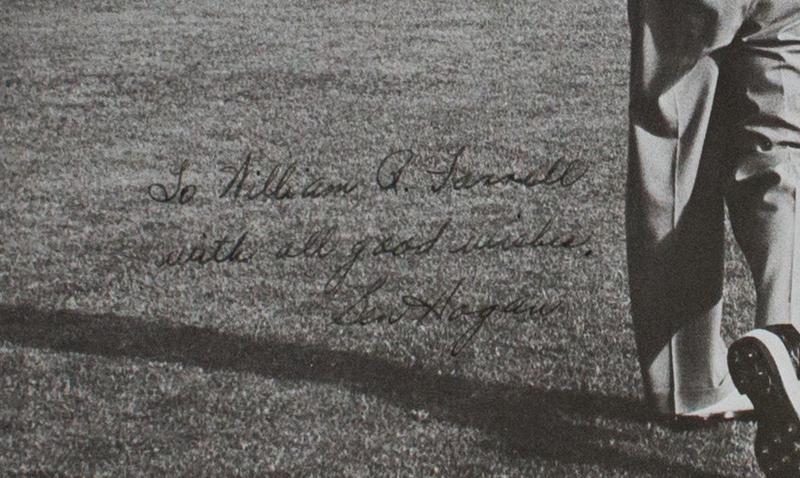 To William R. Farrell
with all good wishes.
Ben Hogan